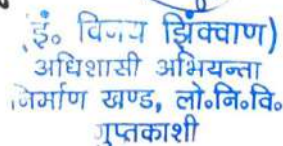 (इं० विजय झिंक्वाण)
अधिशासी अभियन्ता
निर्माण खण्ड, लो०नि०वि०
गुप्तकाशी